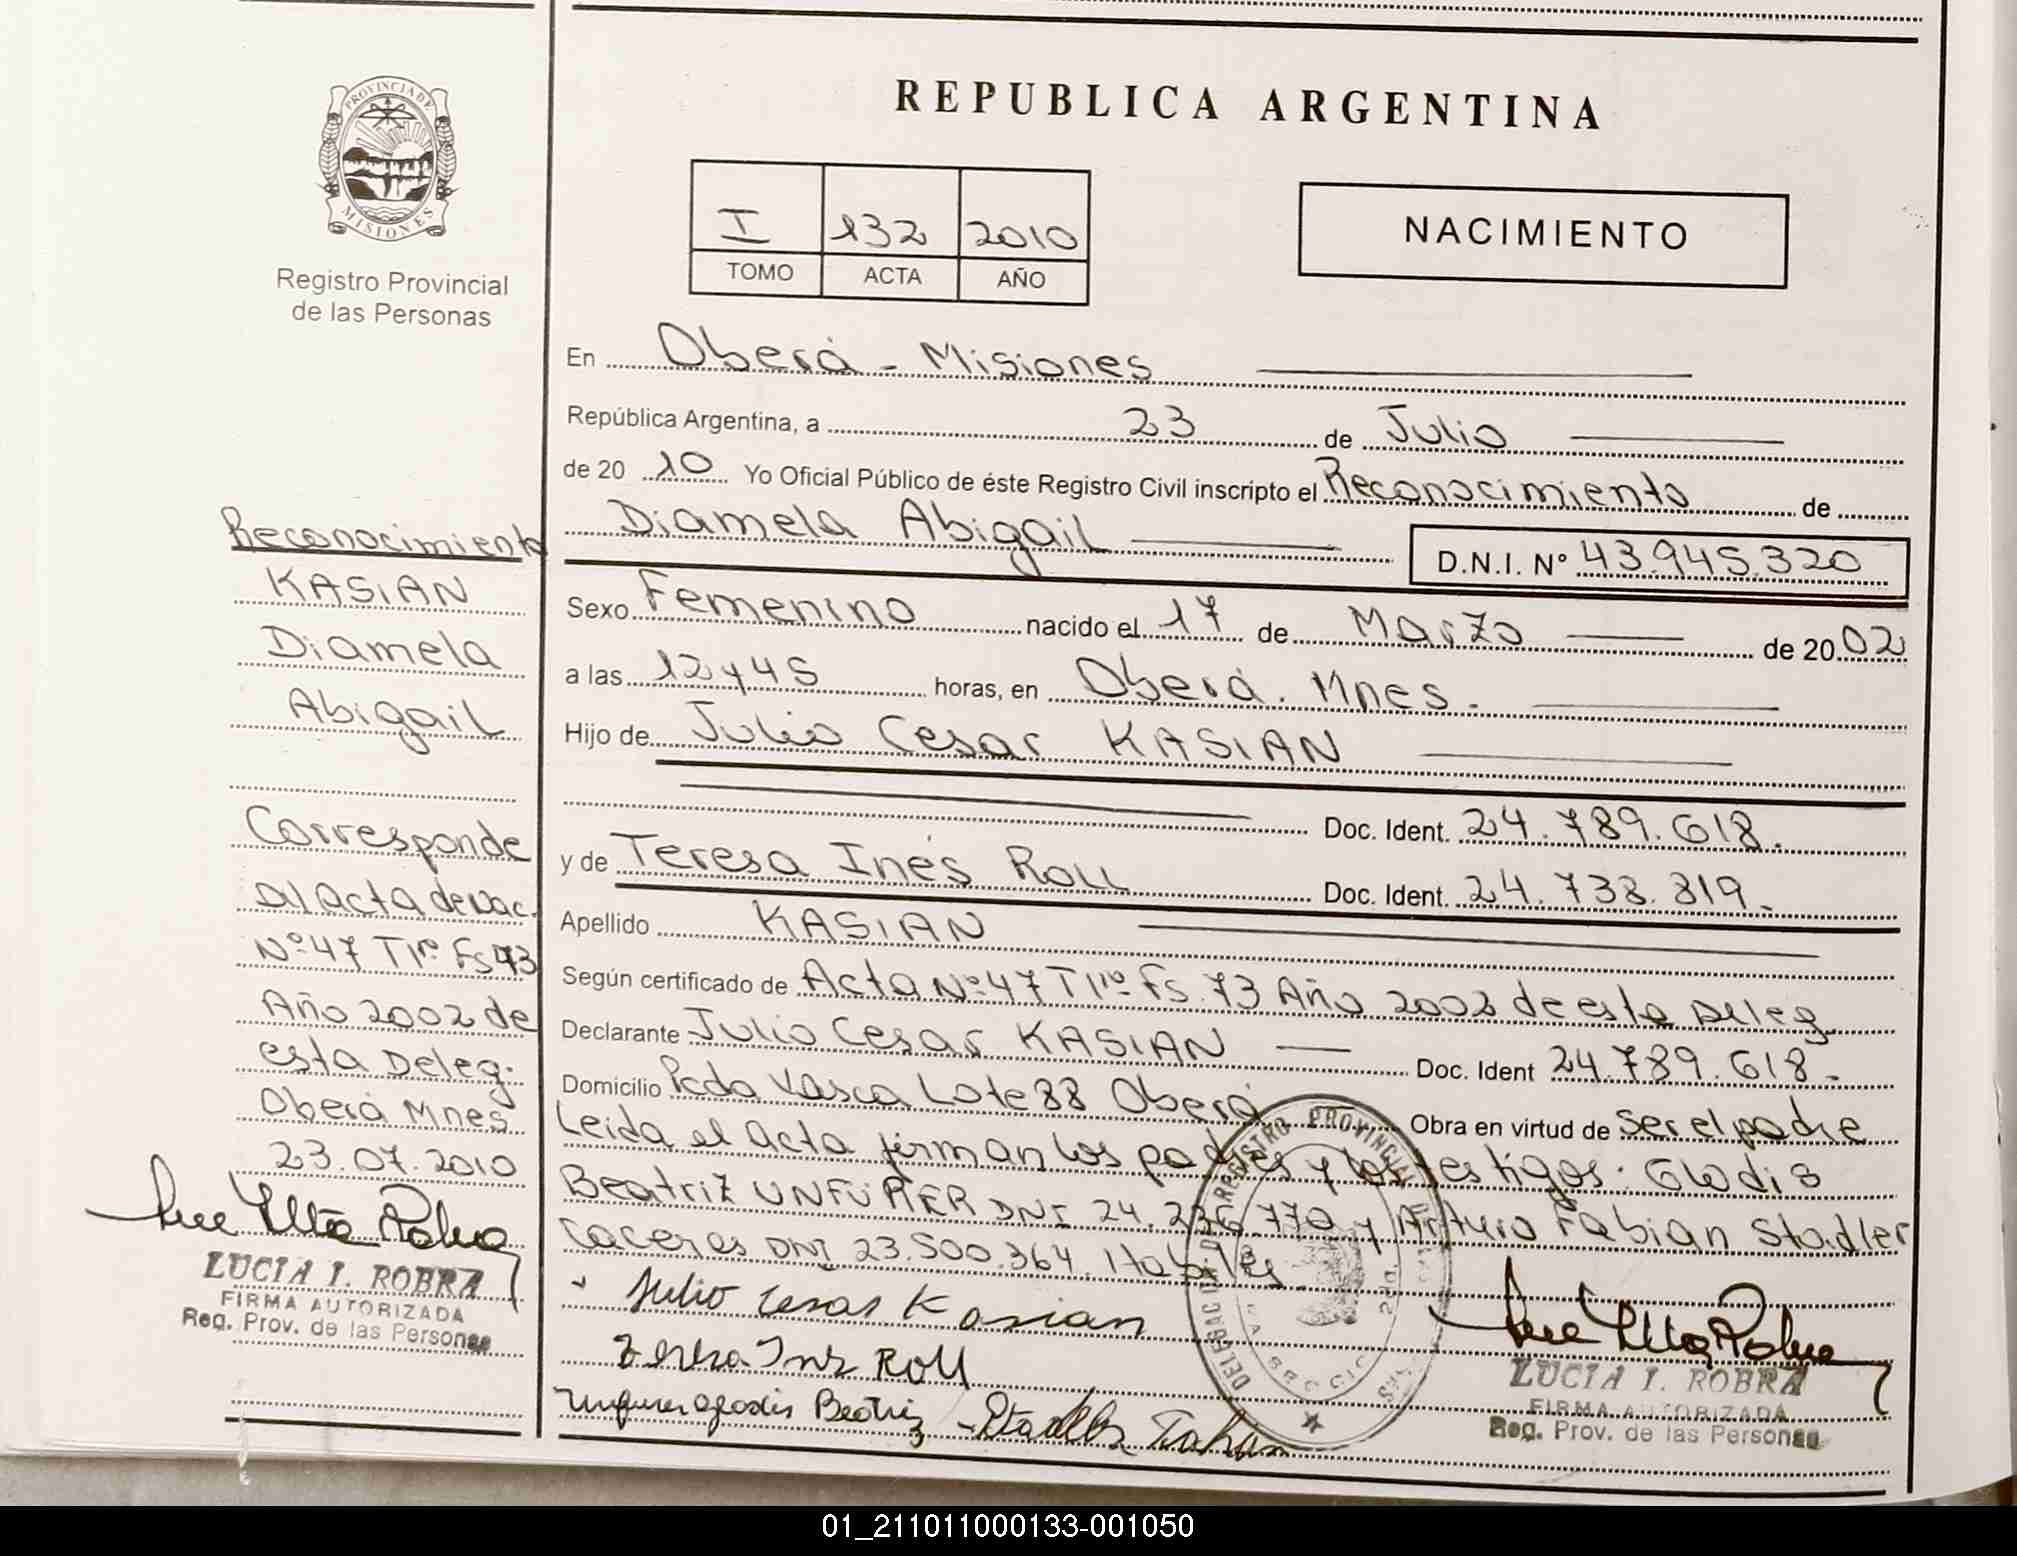 PROVINCIA DE
MISIONES
Registro Provincial
de las Personas
Reconocimiento
KASIAN
Diamela
Abigail
Corresponde
Al Acta de Nac.
Nº 47 T 1rº Fs 73
Año 2002 de
esta Deleg.
Oberá Mnes
23.07.2010
LUCIA I. ROBRA
FIRMA AUTORIZADA
Reg. Prov. de las Personas
REPUBLICA ARGENTINA
I 132 2010
TOMO ACTA AÑO
NACIMIENTO
En Oberá - Misiones
República Argentina, a 23 de Julio
de 20 10 Yo Oficial Público de éste Registro Civil inscripto el Reconocimiento de
Diamela Abigail D.N.I. Nº 43.945.320
Sexo Femenino nacido el 17 de Marzo de 20 02
a las 12 y 45 horas, en Oberá. Mnes.
Hijo de Julio Cesar KASIAN
Doc. Ident. 24.789.618.
y de Teresa Inés Roll Doc. Ident. 24.738.819.
Apellido KASIAN
Según certificado de Acta Nº 47 T 1rº Fs. 73 Año 2002 de esta Deleg
Declarante Julio Cesar KASIAN Doc. Ident 24.789.618.
Domicilio Pcda Vasca Lote 88 Oberá Obra en virtud de ser el padre
Leida el Acta firman los padres y los testigos: Gladis
Beatriz UNFURER DNI 24.226.770 y Arturo Fabian Stadler
Caceres DNI 23.500.364. Habiles.
Julio Cesar Kasian
Teresa Inés Roll
Beatriz - Stadler Fabian
LUCIA I. ROBRA
FIRMA AUTORIZADA
Reg. Prov. de las Personas
01_211011000133-001050